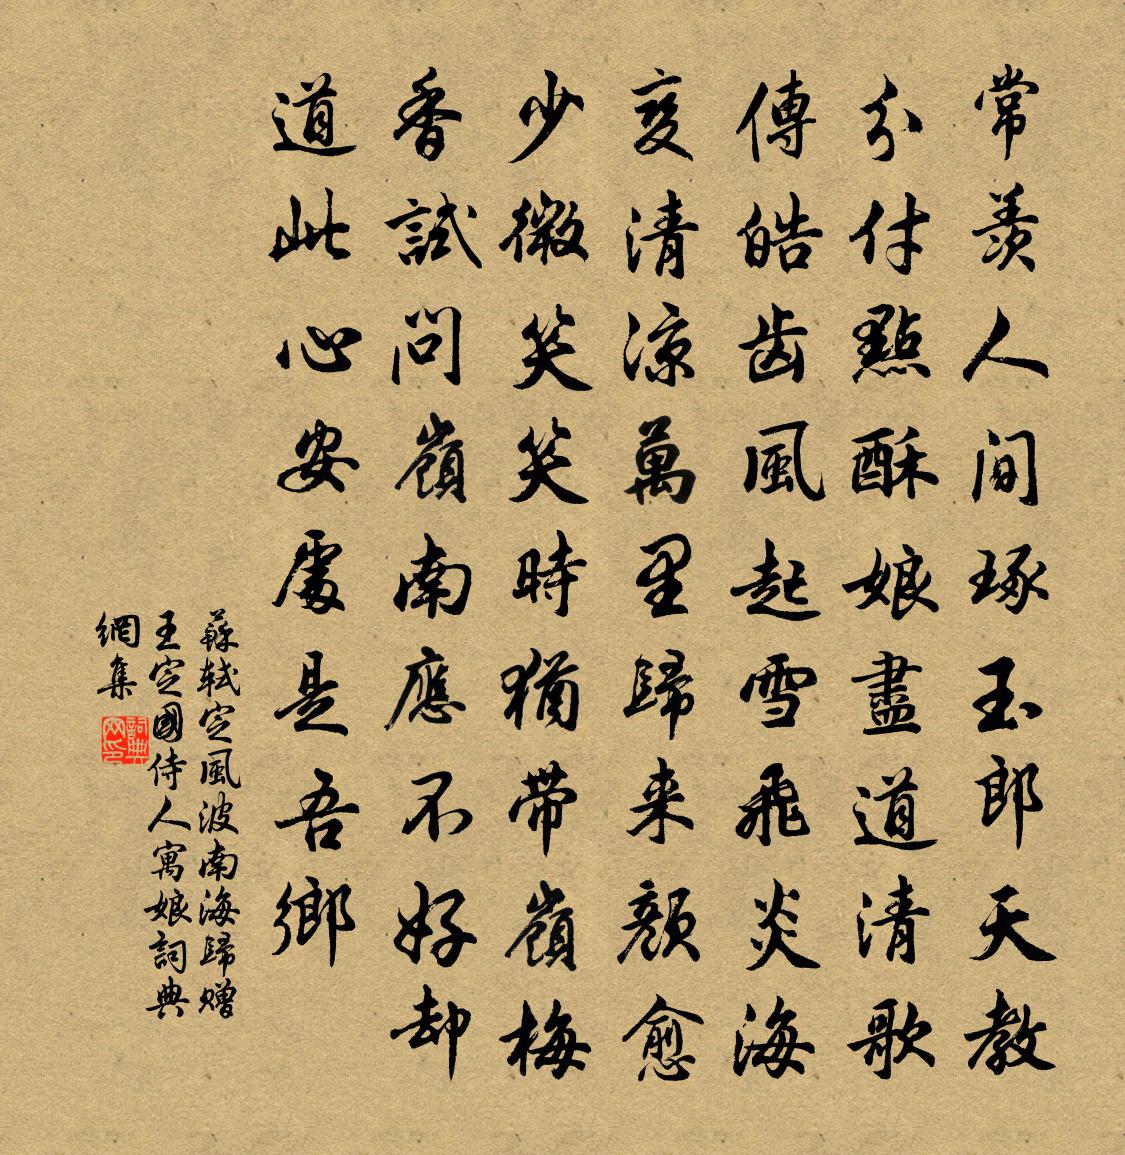 常羨人间琢玉郎天教
分付點酥娘盡道清歌
傳皓齒風起雪飛炎海
变清涼萬里歸来顏愈
少微笑笑時猶帶嶺梅
香試問嶺南應不好却
道此心安處是吾鄉
蘇軾定風波南海歸贈
王定國侍人寓娘詞典
網集
詞典网印